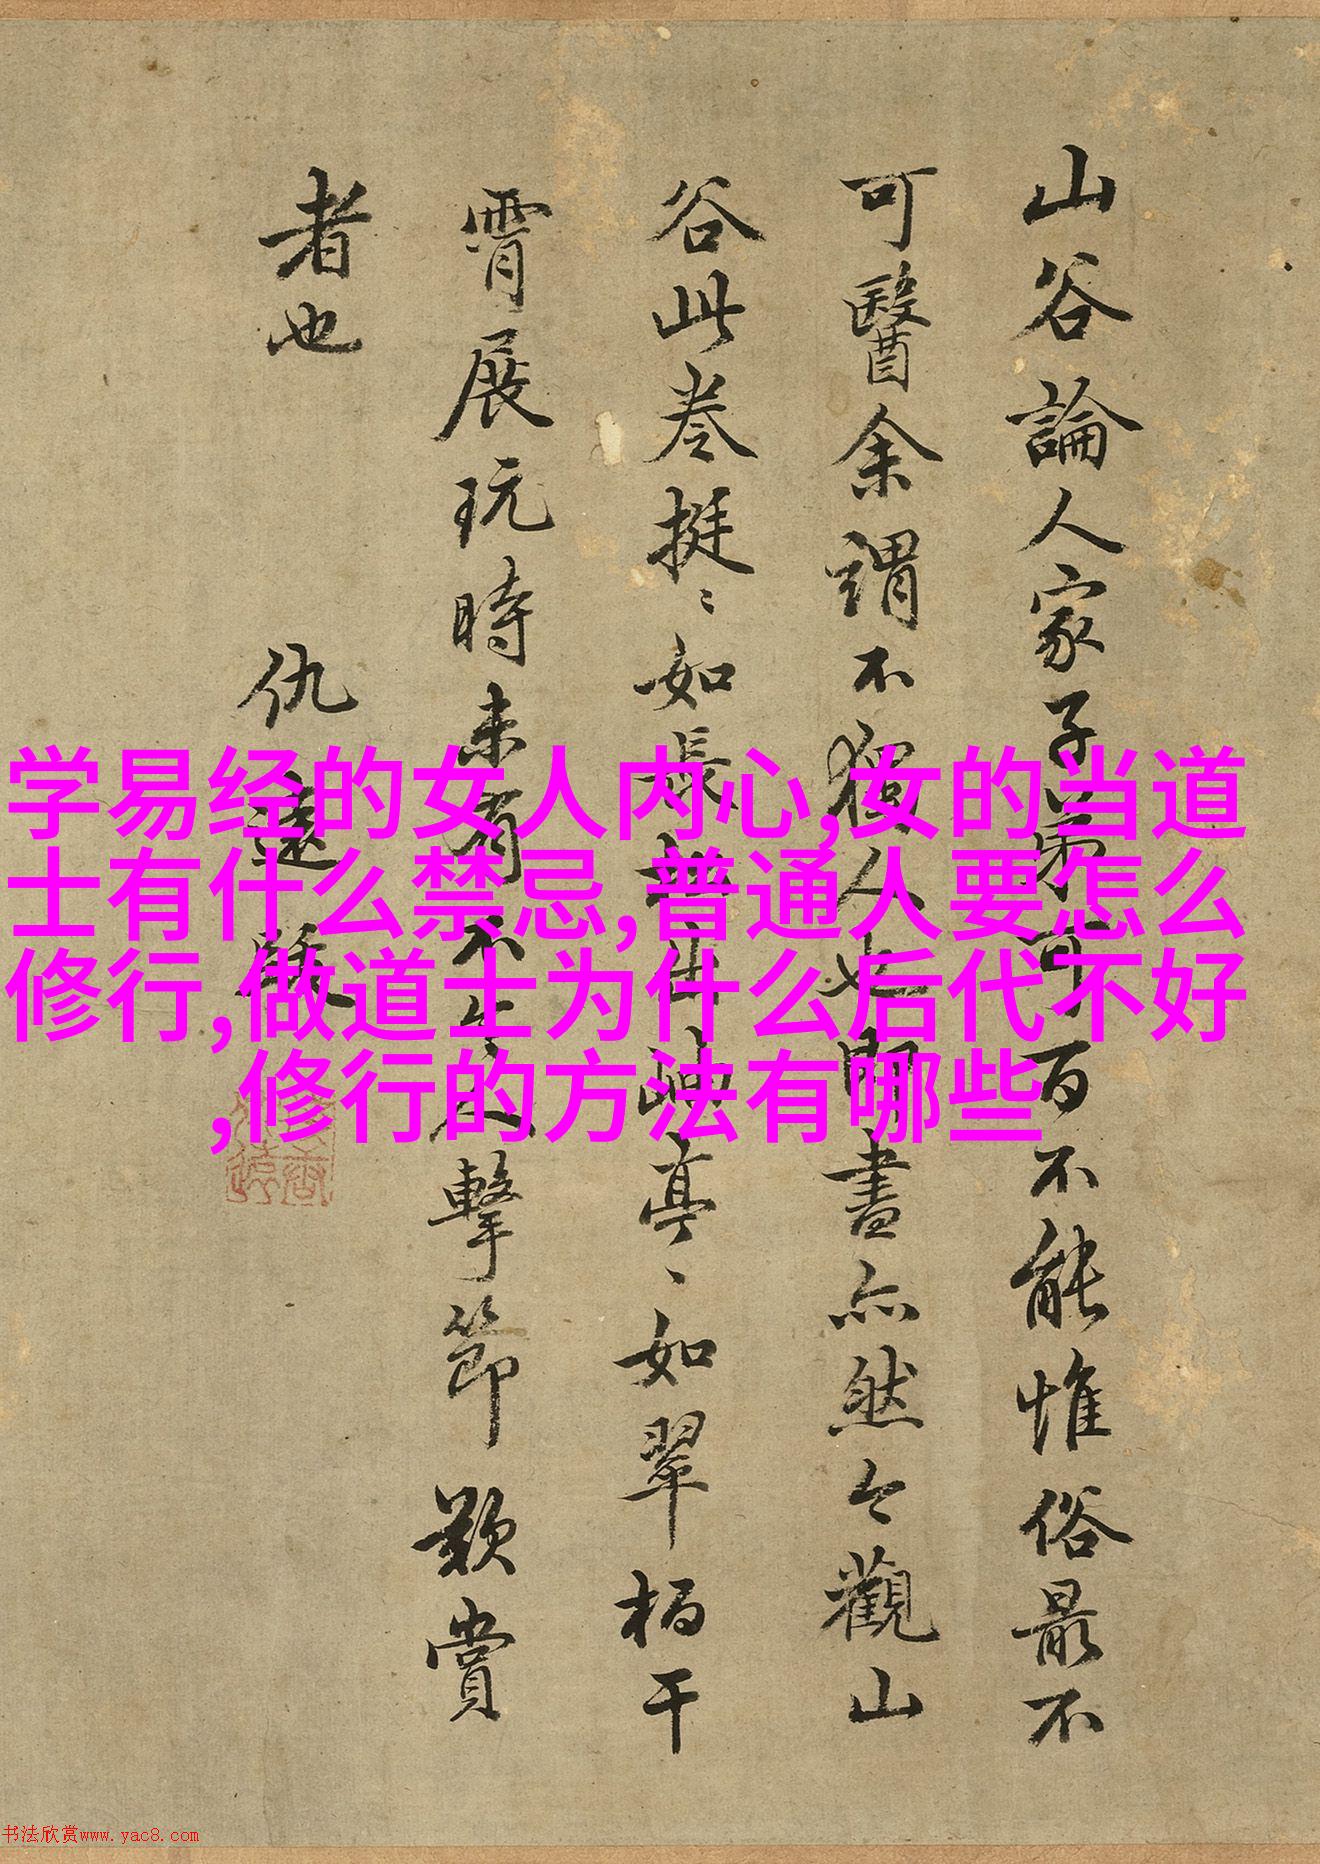 山谷論人家子弟可百不能惟俗最不
可醫余謂不獨人也即書亦然今觀山
谷此卷挺〻如長松出岫亭〻如翠柏干
霄展玩時未有不人擊節歎賞
者也
仇遠跋
学易经的女人内心,女的当道
士有什么禁忌,普通人要怎么
修行,做道士为什么后代不好
,修行的方法有哪些
书法欣赏www.yac8.com